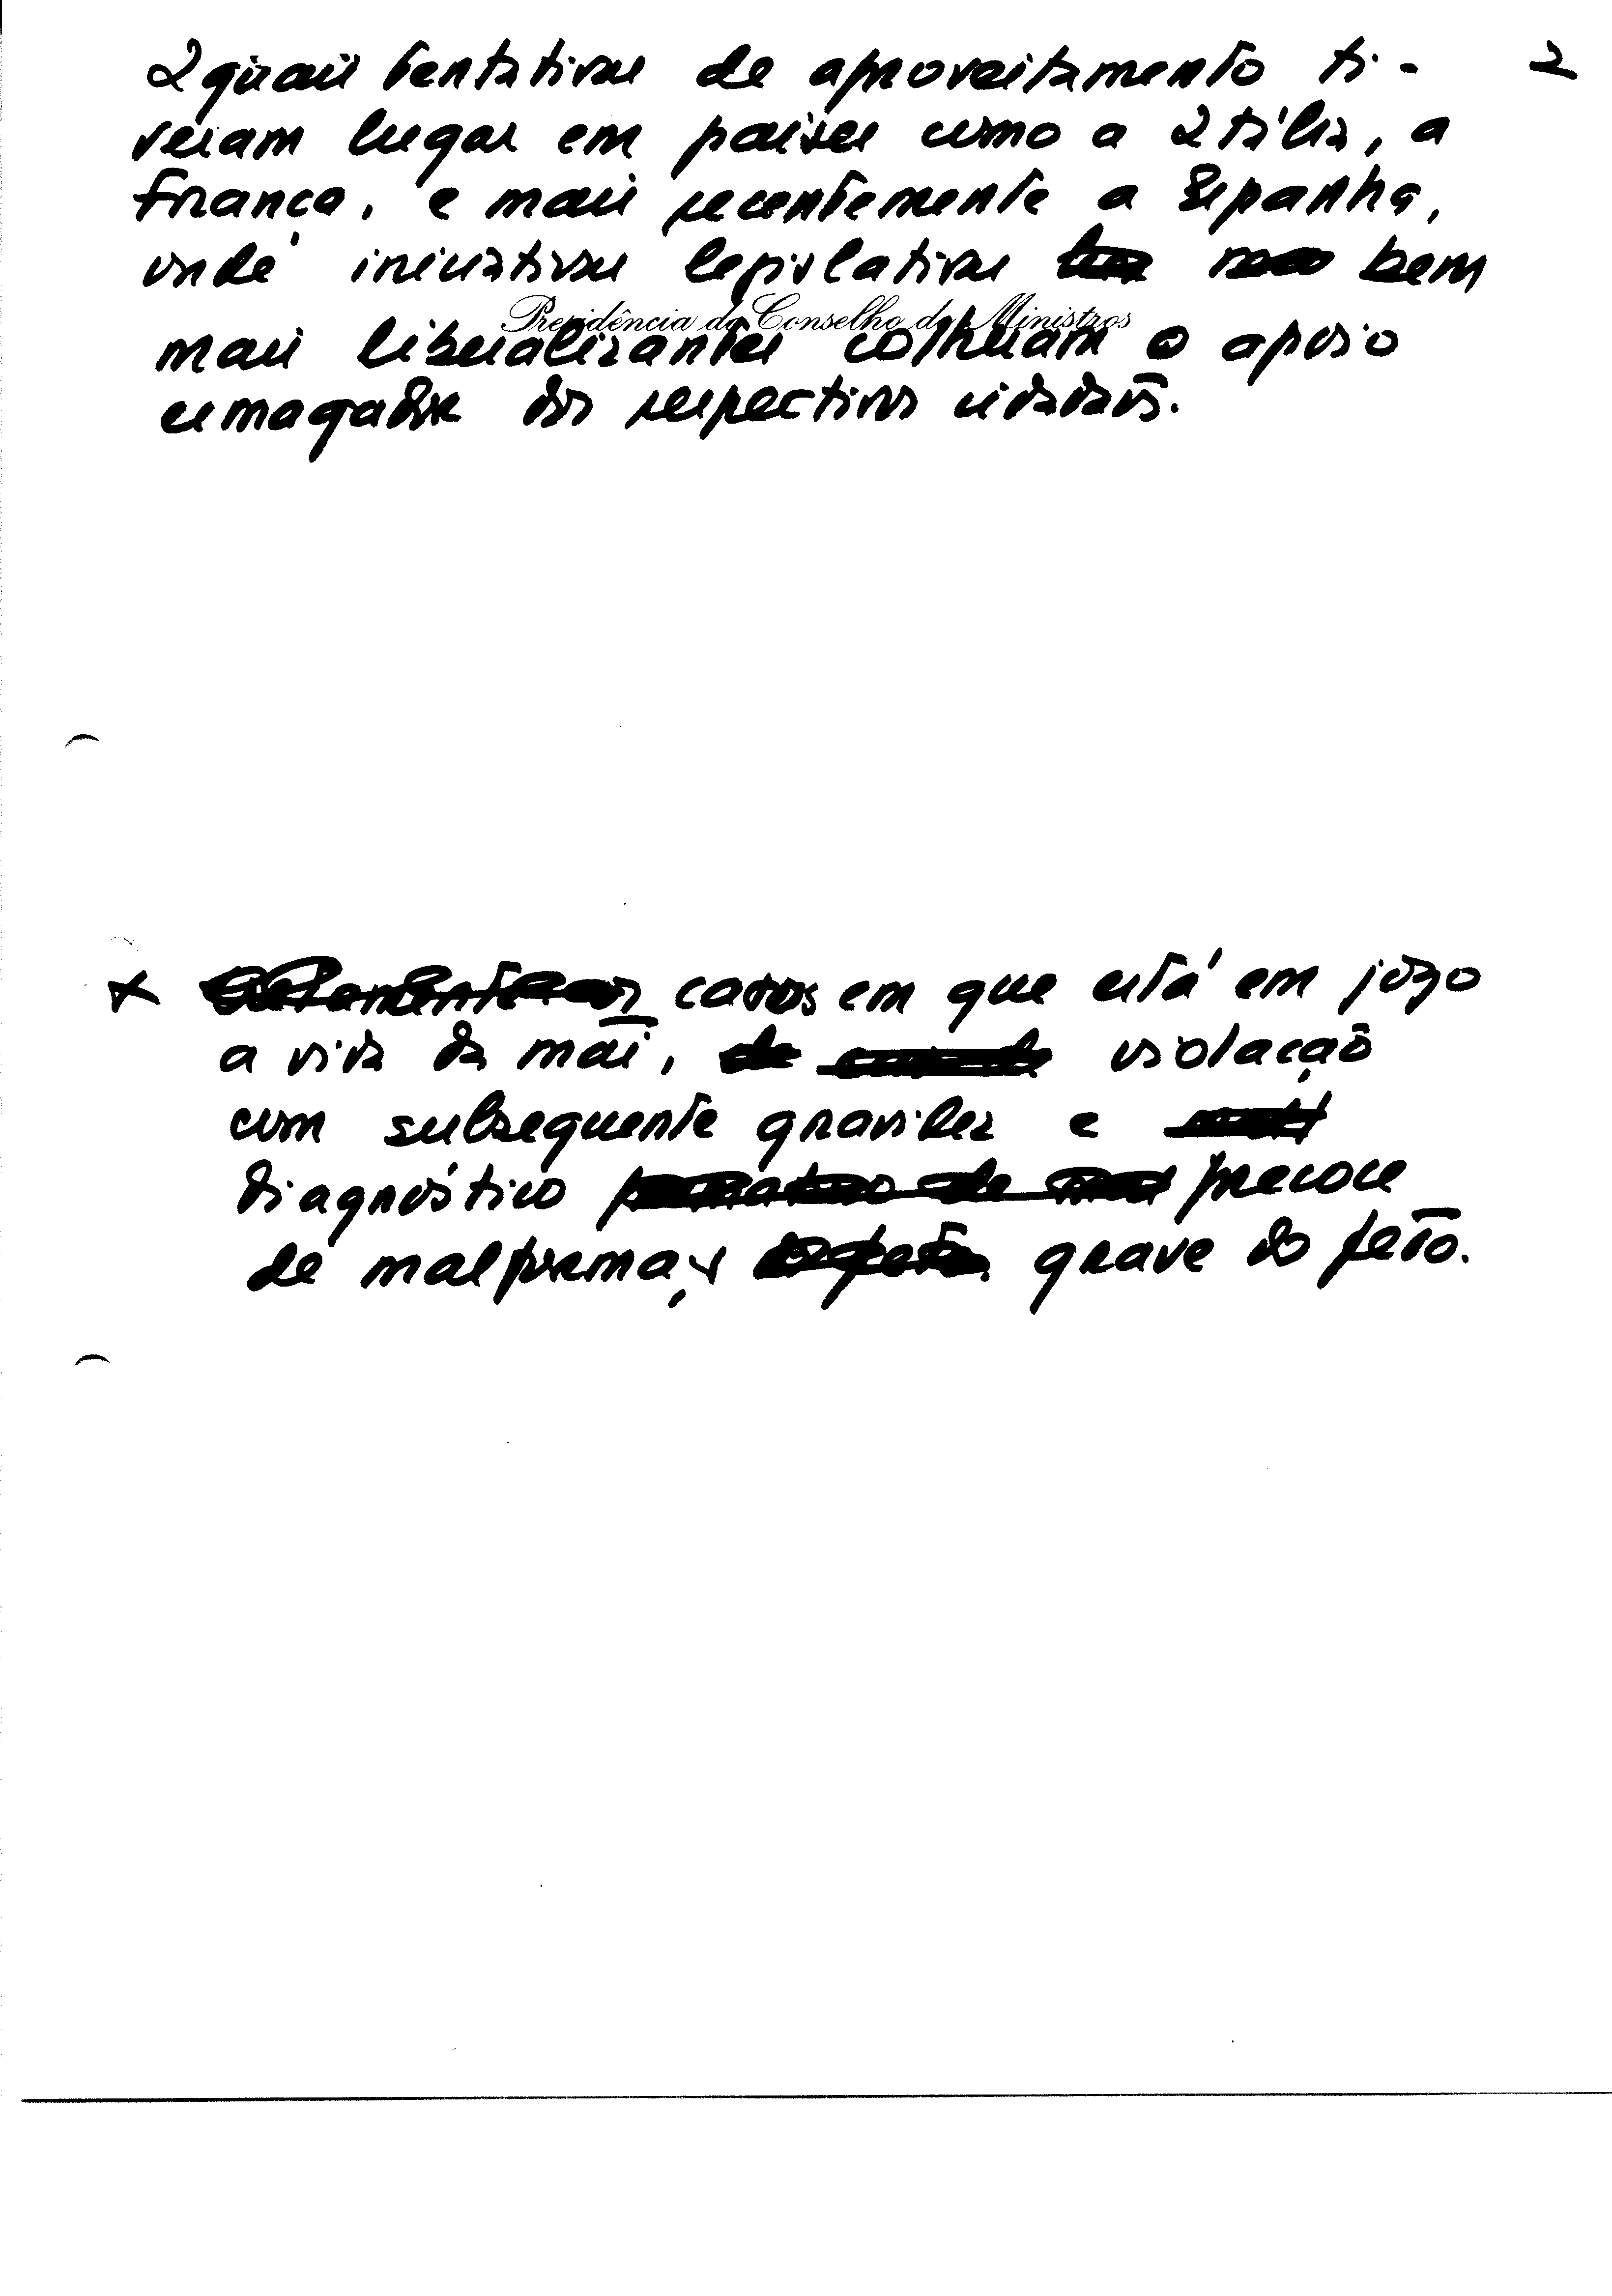 Iguais tentativas de aproveitamento ti- 2
veram lugar em países como a Itália, a
França, e mais recentemente a Espanha,
onde iniciativas legislativas bem
Presidência do Conselho de Ministros
mais liberalizantes colheram o apoio
esmagador dos respectivos cidadãos.
x casos em que está em jogo
a vida da mãi, violação
com subsequente gravidez e
diagnóstico precoce
de malformaç grave do feto.